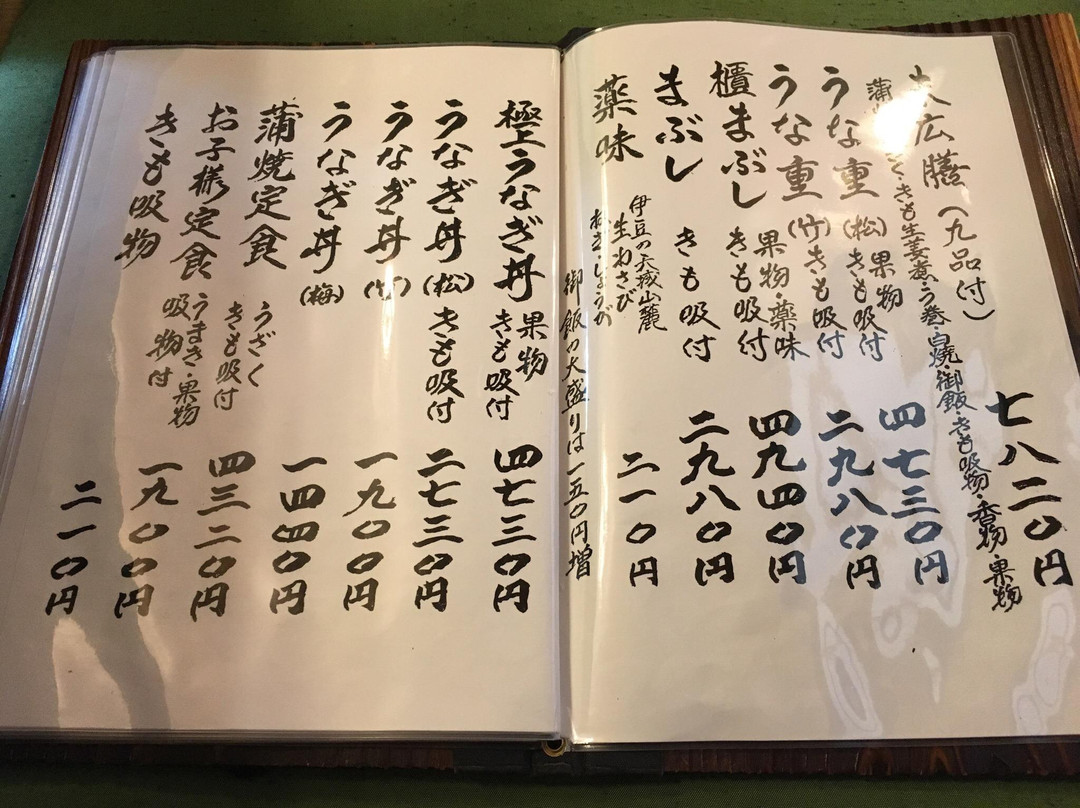 広膳（九品付） 七八二〇円
きも生姜煮・う巻・白焼・御飯・きも吸物・香物・果物
うな重（松） 果物 きも吸付 四七三〇円
うな重（竹） きも吸付 二九八〇円
櫃まぶし 果物・薬味 きも吸付 四九四〇円
まぶし きも吸付 二九八〇円
薬味 伊豆の天城山麓 生わさび 二一〇円
御飯の大盛りは一五〇円増
極上うなぎ丼 果物 きも吸付 四七三〇円
うなぎ丼（松） きも吸付 二七三〇円
うなぎ丼（竹） 一九〇〇円
うなぎ丼（梅） 一四四〇円
蒲焼定食 うざく きも吸付 四三二〇円
お子様定食 うまき・果物 吸物付 一九〇〇円
きも吸物 二一〇円